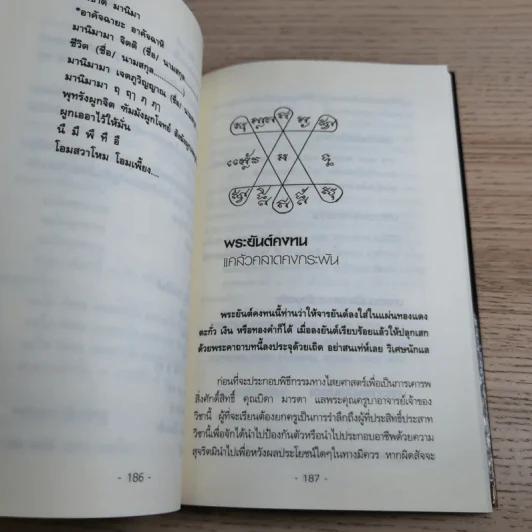 มานิมา
*อาคัจฉายะ อาคัจฉาหิ
มานิมามา จิตติ (ชื่อ/ นามสกุล
ชีวิต (ชื่อ/ นามสกุล..............)
มานิมามา เจตภูวิญญาณ (ชื่อ/
มานิมามา ฤ ฤๅ ภ ภา
พุทธังผูกจิต ธัมมังผูกโจทย์
ผูกเออาไว้ให้มั่น
นี มี พี ที อื
โอมสวาโหม โอมเพี้ยง....
- 186 -
พระยันต์คงทน
แคล้วคลาดคงกระพัน
พระยันต์คงทนนี้ท่านว่าให้จารยันต์ลงใส่ในแผ่นทองแดง
ตะกั่ว เงิน หรือทองคำก็ได้ เมื่อลงยันต์เรียบร้อยแล้วให้ปลุกเสก
ด้วยพระคาถาบทนี้ลงประจุด้วยเถิด อย่าสนเท่ห์เลย วิเศษนักแล
ก่อนที่จะประกอบพิธีกรรมทางไสยศาสตร์เพื่อเป็นการเคารพ
สิ่งศักดิ์สิทธิ์ คุณบิดา มารดา แลพระคุณครูบาอาจารย์เจ้าของ
วิชานี้ ผู้ที่จะเรียนต้องยกครูเป็นการรำลึกถึงผู้ที่ประสิทธิ์ประสาท
วิชานี้เพื่อจักได้นำไปป้องกันตัวหรือนำไปประกอบอาชีพด้วยความ
สุจริตมินำไปเพื่อหวังผลประโยชน์ใดๆในทางมิควร หากผิดสัจจะ
- 187 -